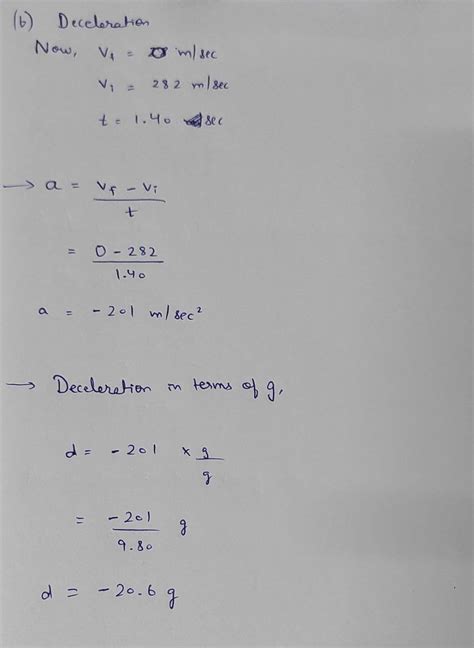 (b) Deceleration
Now, Vf = 0 m/sec
Vi = 282 m/sec
t = 1.40 sec
→ a = Vf - Vi
t
= 0 - 282
1.40
a = - 201 m/sec²
→ Deceleration in terms of g,
d = - 201 × g
g
= - 201 g
9.80
d = - 20.6 g